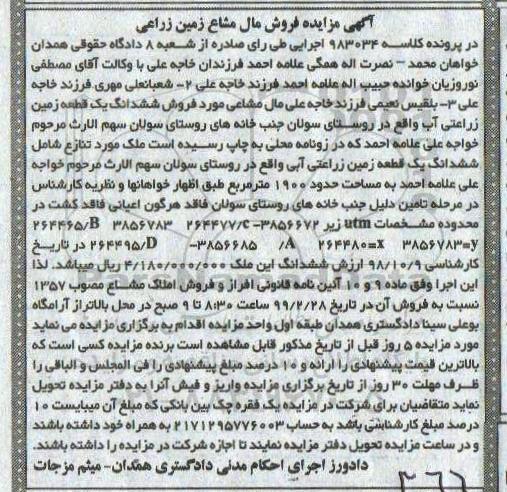 آگهی مزایده فروش مال مشاع زمین زراعی
در پرونده کلاسه ۹۸۳۰۳۴ اجرایی طی رای صادره از شعبه ۸ دادگاه حقوقی همدان
خواهان محمد - نصرت اله همگی علامه احمد فرزندان خاجه علی با وکالت آقای مصطفی
نوروزیان خوانده حبیب اله علامه احمد فرزند خاجه علی ۲- شعبانعلی مهری فرزند خاجه
علی ۳- بلقیس نعیمی فرزند خاجه علی مال مشاعی مورد فروش ششدانگ یک قطعه زمین
زراعتی آب واقع در روستای سولان جنب خانه های روستای سولان سهم الارث مرحوم
خواجه علی علامه احمد که در زونامه محلی به چاپ رسیده است ملک مورد تنازع شامل
ششدانگ یک قطعه زمین زراعتی آبی واقع در روستای سولان سهم الارث مرحوم خواجه
علی علامه احمد به مساحت حدود ۱۹۰۰ مترمربع طبق اظهار خواهانها و نظریه کارشناس
در مرحله تامین دلیل جنب خانه های روستای سولان فاقد هرگون اعیانی فاقد کشت در
محدوده مشخصات utm زیر ۳۸۵۶۶۷۲- ۲۶۴۴۷۷/c ۳۸۵۶۷۸۳ ۲۶۴۴۶۵/B
۳۸۵۶۷۸۳=y ۲۶۴۴۸۰=x /A ۳۸۵۶۶۸۵- ۲۶۴۴۹۵/D در تاریخ
کارشناسی ۹۸/۱۰/۹ ارزش ششدانگ این ملک ۴/۱۸۰/۰۰۰/۰۰۰ ریال میباشد. لذا
این اجرا وفق ماده ۹ و ۱۰ آئین نامه قانونی افراز و فروش املاک مشاع مصوب ۱۳۵۷
نسبت به فروش آن در تاریخ ۹۹/۲/۲۸ ساعت ۸:۳۰ تا ۹ صبح در محل بالاتر از آرامگاه
بوعلی سینا دادگستری همدان طبقه اول واحد مزایده اقدام به برگزاری مزایده می نماید
مورد مزایده ۵ روز قبل از تاریخ مذکور قابل مشاهده است برنده مزایده کسی است که
بالاترین قیمت پیشنهادی را ارائه و ۱۰ درصد مبلغ پیشنهادی را فی المجلس و الباقی را
ظرف مهلت ۳۰ روز از تاریخ برگزاری مزایده واریز و فیش آنرا به دفتر مزایده تحویل
نماید متقاضیان برای شرکت در مزایده یک فقره چک بین بانکی که مبلغ آن میبایست ۱۰
درصد مبلغ کارشناسی باشد به حساب ۲۱۷۱۲۹۵۷۷۶۰۰۳ به همراه خود داشته باشند
و در ساعت مزایده تحویل دفتر مزایده نمایند تا اجازه شرکت در مزایده را داشته باشند.
دادورز اجرای احکام مدنی دادگستری همدان- میثم مزجات